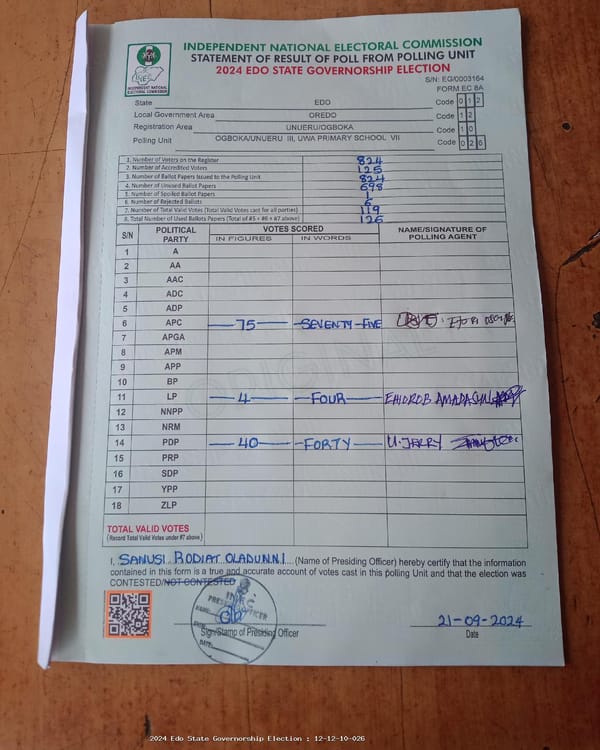 INDEPENDENT NATIONAL ELECTORAL COMMISSION
STATEMENT OF RESULT OF POLL FROM POLLING UNIT
2024 EDO STATE GOVERNORSHIP ELECTION
INEC
INDEPENDENT NATIONAL ELECTORAL COMMISSION
S/N: EG/0003164
FORM EC 8A
State EDO Code 0 1 2
Local Government Area OREDO Code 1 2
Registration Area UNUERU/OGBOKA Code 1 0
Polling Unit OGBOKA/UNUERU III, UWA PRIMARY SCHOOL VII Code 0 2 6
1. Number of Voters on the Register 824
2. Number of Accredited Voters 125
3. Number of Ballot Papers Issued to the Polling Unit 824
4. Number of Unused Ballot Papers 698
5. Number of Spoiled Ballot Papers 1
6. Number of Rejected Ballots 6
7. Number of Total Valid Votes (Total Valid Votes cast for all parties) 119
8. Total Number of Used Ballots Papers (Total of #5 + #6 + #7 above) 126
S/N POLITICAL PARTY VOTES SCORED NAME/SIGNATURE OF POLLING AGENT
IN FIGURES IN WORDS
1 A
2 AA
3 AAC
4 ADC
5 ADP
6 APC 75 SEVENTY-FIVE
7 APGA
8 APM
9 APP
10 BP
11 LP 4 FOUR EHIOROB AMADASUN
12 NNPP
13 NRM
14 PDP 40 FORTY U. JERRY
15 PRP
16 SDP
17 YPP
18 ZLP
TOTAL VALID VOTES
(Record Total Valid Votes under #7 above)
I, SANUSI RODIAT OLADUNNI (Name of Presiding Officer) hereby certify that the information
contained in this form is a true and accurate account of votes cast in this polling Unit and that the election was
CONTESTED/NOT CONTESTED
INEC
PRESIDING OFFICER
NAME
SIGN
DATE
Sign/Stamp of Presiding Officer
21-09-2024
Date
2024 Edo State Governorship Election : 12-12-10-026